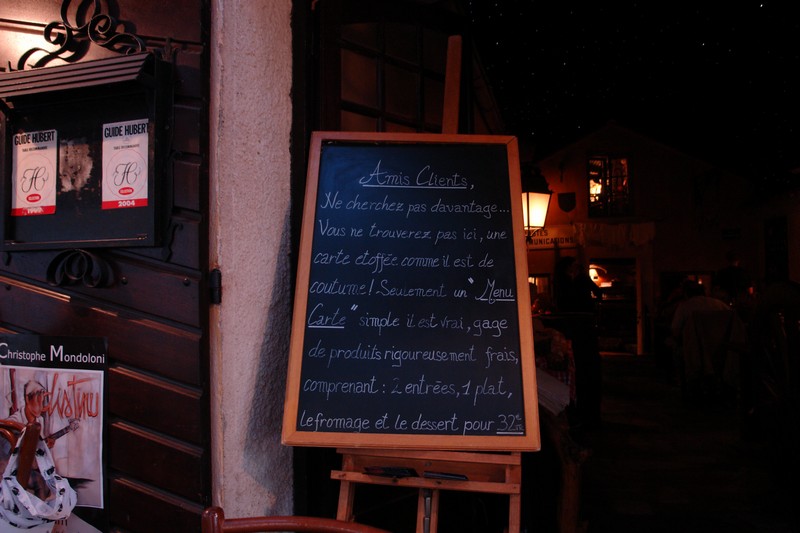 GUIDE HUBERT
GUIDE HUBERT
2004
Christophe Mondoloni
Amis Clients,
Ne cherchez pas davantage...
Vous ne trouverez pas ici, une
carte etoffée comme il est de
coutume! Seulement un "Menu
Carte" simple il est vrai, gage
de produits rigoureusement frais,
comprenant: 2 entrées, 1 plat,
le fromage et le dessert pour 32€